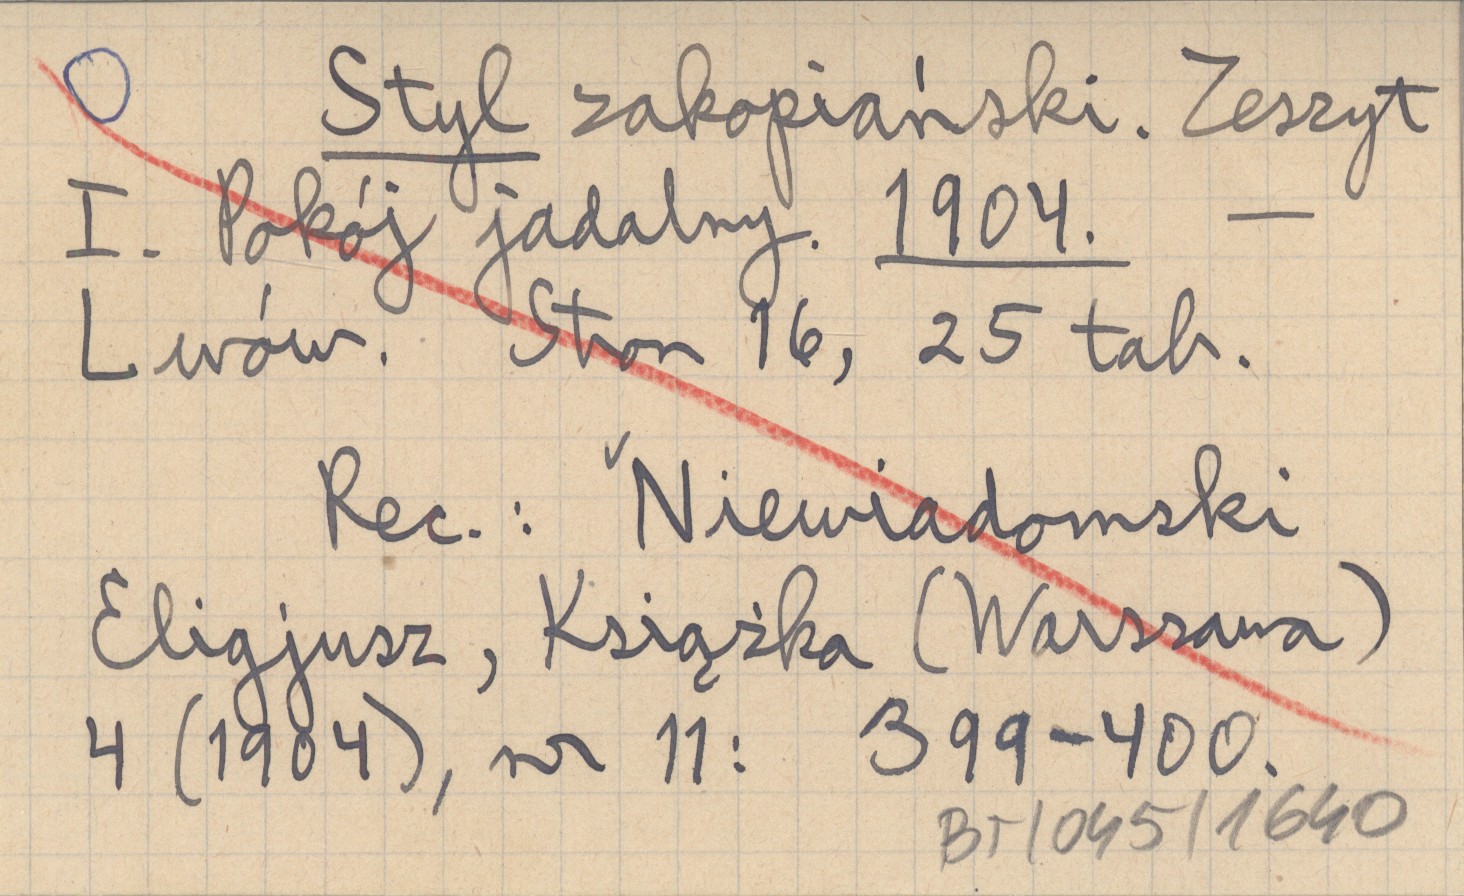 Styl zakopiański. Zeszyt
I. Pokój jadalny. 1904. —
Lwów. Stron 16, 25 tab.
Rec.: Niewiadomski
Eligjusz, Książka (Warszawa)
4 (1904), nr 11: 399-400.
BT/045/1640